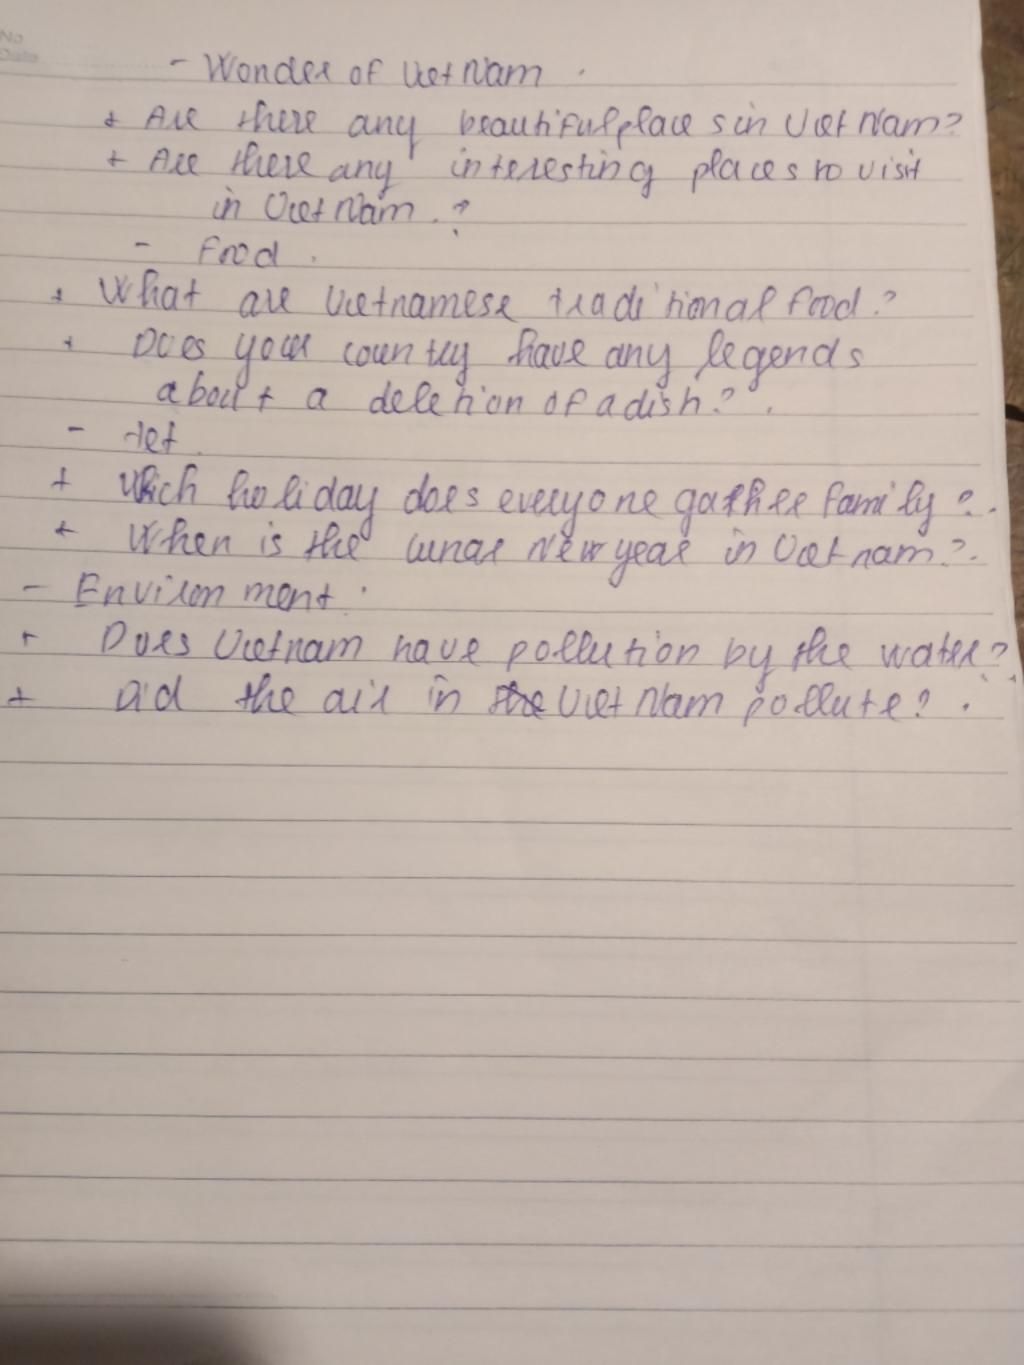 No
Date
- Wonder of Viet Nam.
+ Are there any beautiful places in Viet Nam?
+ Are there any interesting places to visit
in Viet Nam.?
- Food.
+ What are Vietnamese traditional food?
+ Does your country have any legends
about a deletion of a dish?.
- tet.
+ Which holiday does everyone gather family?.
+ When is the lunar New year in Viet nam?.
- Environment.
+ Does Vietnam have pollution by the water?
+ Did the air in Viet Nam pollute?.